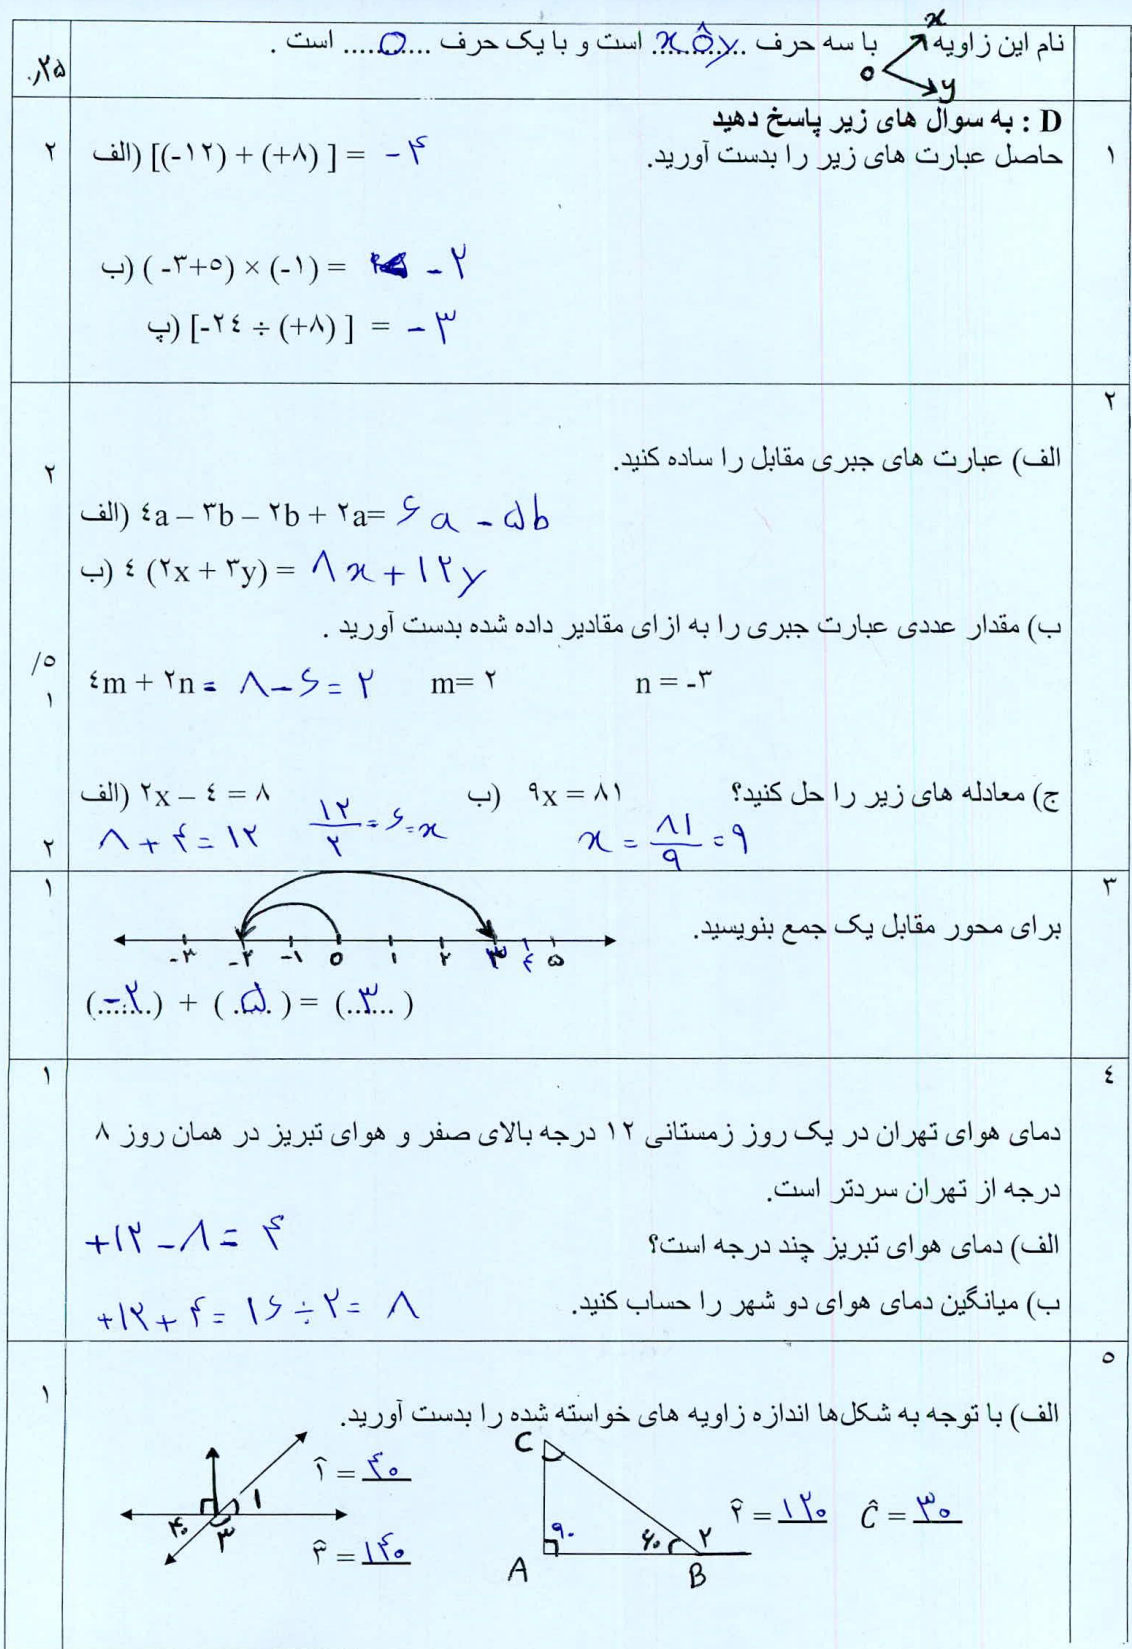 نام این زاویه x o y با سه حرف xÔy است و با یک حرف O است .
۲۵/.
D : به سوال های زیر پاسخ دهید
۱ حاصل عبارت های زیر را بدست آورید. الف) [(-۱۲) + (+۸) ] = -۴ ۲
ب) ( -۳+۵) × (-۱) = -۲
پ) [-۲٤ ÷ (+۸) ] = -۳
۲
الف) عبارت های جبری مقابل را ساده کنید. ۲
الف) ٤a – ۳b – ۲b + ۲a= ۶a - ۵b
ب) ٤ (۲x + ۳y) = ۸x + ۱۲y
ب) مقدار عددی عبارت جبری را به ازای مقادیر داده شده بدست آورید .
/۵
۱
٤m + ۲n = ۸-۶ = ۲ m= ۲ n = -۳
ج) معادله های زیر را حل کنید؟ ب) ۹x = ۸۱ الف) ۲x – ٤ = ۸
۸ + ۴ = ۱۲ ۱۲/۲ = ۶ = x x = ۸۱/۹ = ۹ ۲
۳ ۱
برای محور مقابل یک جمع بنویسید.
-۳ -۲ -۱ ۰ ۱ ۲ ۳ ۴ ۵
(-۲) + (۵) = (۳)
٤ ۱
دمای هوای تهران در یک روز زمستانی ۱۲ درجه بالای صفر و هوای تبریز در همان روز ۸
درجه از تهران سردتر است.
الف) دمای هوای تبریز چند درجه است؟ +۱۲ - ۸ = ۴
ب) میانگین دمای هوای دو شهر را حساب کنید. +۱۲ + ۴ = ۱۶ ÷ ۲ = ۸
۵ ۱
الف) با توجه به شکل‌ها اندازه زاویه های خواسته شده را بدست آورید.
۱̂ = ۴۰ ۱ ۴۰ ۳
۳̂ = ۱۴۰
C ۹۰ ۶۰ ۲ A B
۲̂ = ۱۲۰ Ĉ = ۳۰